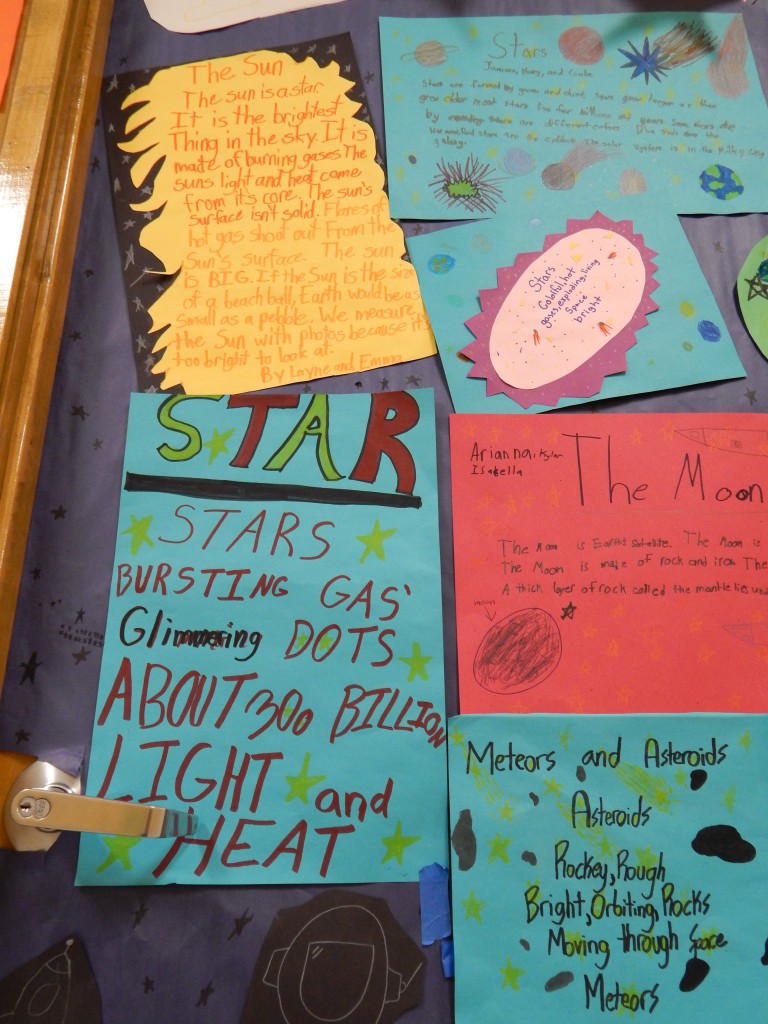 The Sun
The sun is a star.
It is the brightest
Thing in the sky. It is
made of burning gases The
suns light and heat come
from it's core. The sun's
surface isn't solid. Flares of
hot gas shoot out From the
Sun's surface. The sun
is BIG. If the Sun is the size
of a beach ball, Earth would be as
small as a pebble. We measure
the Sun with photos because it's
too bright to look at.
By Layne and Emma
Stars
and
Stars are formed by
most stars for billions of years Some stars die
by there are different
stars are The solar system is in the Milky Way
galaxy.
Stars
Colorful, hot
gases, exploding, living
Space
bright
STAR
STARS
BURSTING GAS'
Glimmering DOTS
ABOUT 300 BILLION
LIGHT and
HEAT
Arianna, Kylar
Isabella
The Moon
The Moon is Earths Satellite. The Moon is
The Moon is made of rock and iron The
A thick layer of rock called the mantle lies
moon
Meteors and Asteroids
Asteroids
Rockey, Rough
Bright, Orbiting, Rocks
Moving through Space
Meteors